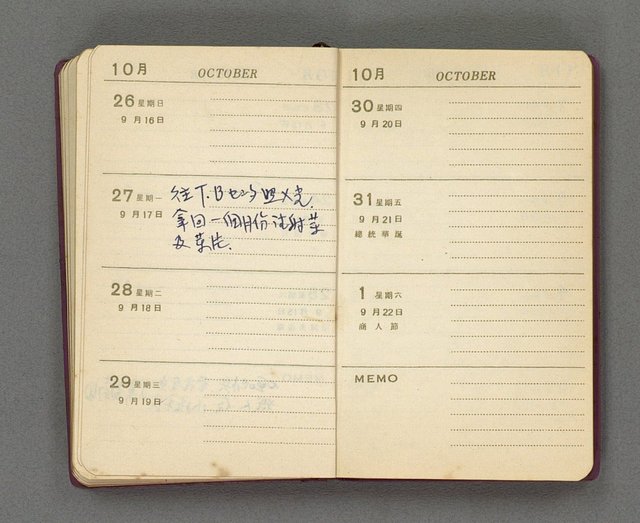 10月 OCTOBER
26 星期日
9 月 16 日
27 星期一
9 月 17 日
往 T.B 中心照 X 光.
拿回一個月份注射葯
及葯片.
28 星期二
9 月 18 日
29 星期三
9 月 19 日
10月 OCTOBER
30 星期四
9 月 20 日
31 星期五
9 月 21 日
總統華誕
1 星期六
9 月 22 日
商人節
MEMO